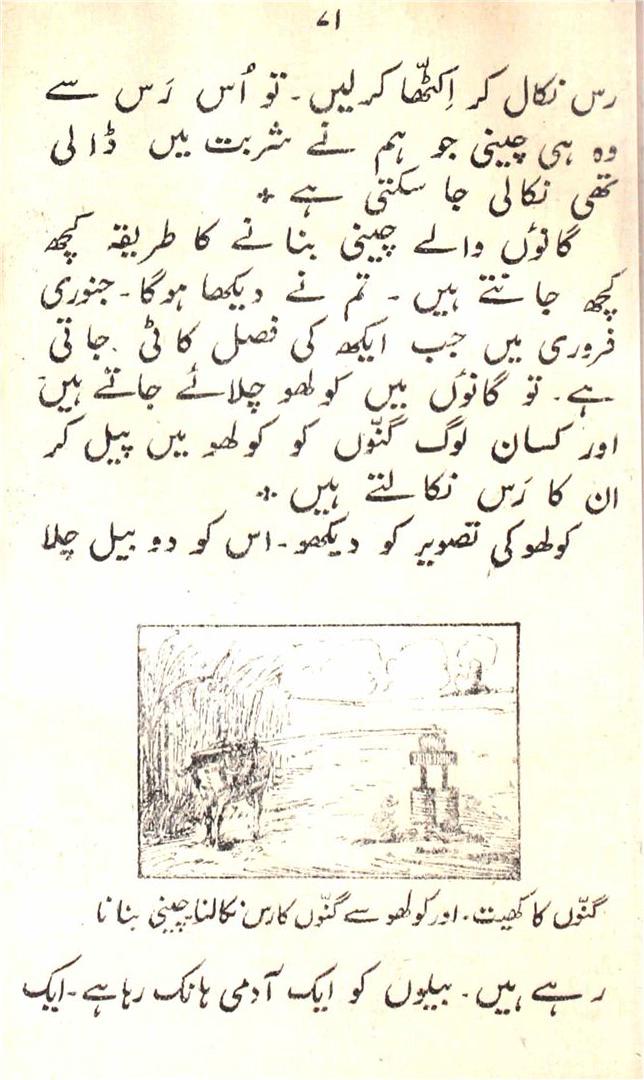 ۷۱
رس نکال کر اِکٹھّا کر لیں۔ تو اُس رَس سے
وہ ہی چینی جو ہم نے شربت میں ڈالی
تھی نکالی جا سکتی ہے ٭
گانوٗں والے چینی بنانے کا طریقہ کچھ
کچھ جانتے ہیں۔ تم نے دیکھا ہوگا۔ جنوری
فروری میں جب ایکھ کی فصل کاٹی جاتی
ہے۔ تو گانوٗں میں کولھو چلائے جاتے ہیں
اور کسان لوگ گنّوں کو کولھو میں پیل کر
ان کا رَس نکالتے ہیں ٭
کولھو کی تصویر کو دیکھو۔ اس کو دو بیل چلا
گنّوں کا کھیت۔ اور کولھو سے گنّوں کا رس نکالنا۔ چینی بنانا
رہے ہیں۔ بیلوں کو ایک آدمی ہانک رہا ہے۔ ایک